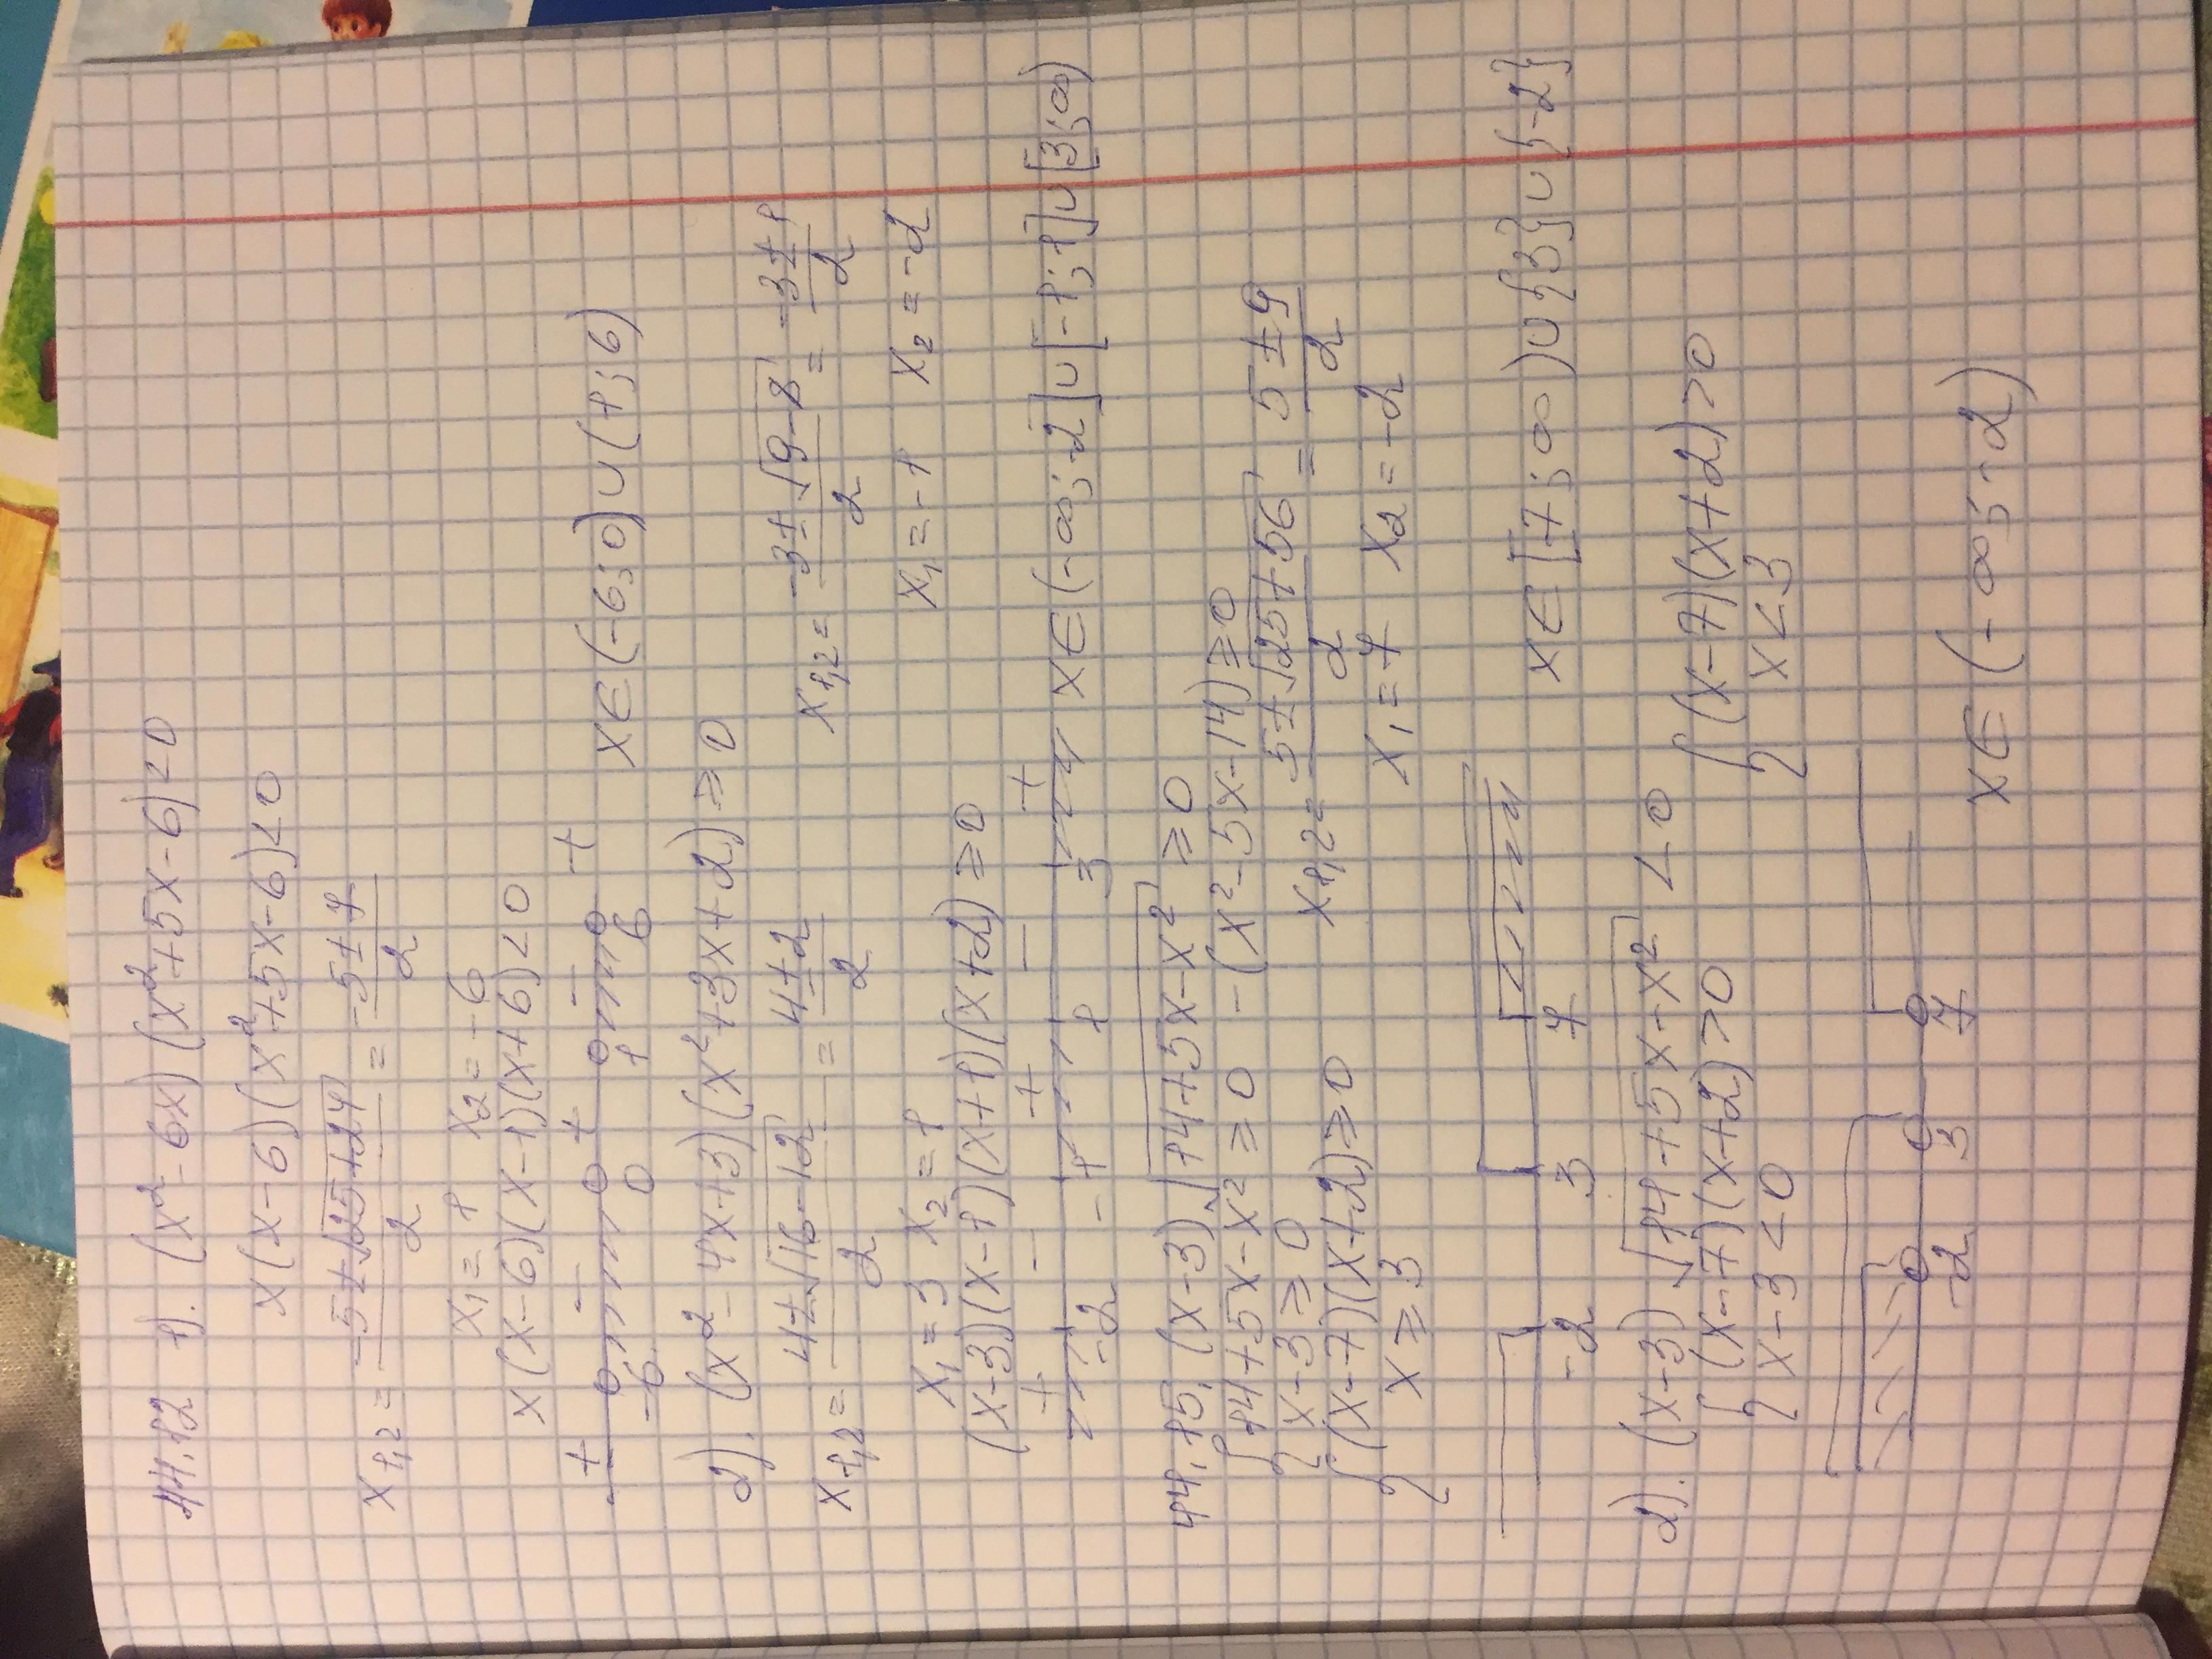 44.12 1). (x²-6x)(x²+5x-6)<0
x(x-6)(x²+5x-6)<0
x1,2= -5±√25+24 / 2 = -5±7 / 2
x₁=1 x₂=-6
x(x-6)(x-1)(x+6)<0
+ - + - +
-6 0 1 6 x∈(-6;0)∪(1;6)
2). (x²-4x+3)(x²+3x+2)≥0
x1,2= 4±√16-12 / 2 = 4±2 / 2 x1,2= -3±√9-8 / 2 = -3±1 / 2
x₁=3 x₂=1 x₁=-1 x₂=-2
(x-3)(x-1)(x+1)(x+2)≥0
+ - + - +
-2 -1 1 3 x∈(-∞;-2]∪[-1;1]∪[3;∞)
44.15. (x-3)√14+5x-x² ≥0
{14+5x-x²≥0 -(x²-5x-14)≥0
x-3≥0 x1,2= 5±√25+56 / 2 = 5±9 / 2
{(x-7)(x+2)≥0
x≥3 x₁=7 x₂=-2
-2 3 7 x∈[7;∞)∪{3}∪{-2}
2). (x-3)√14+5x-x² <0
{(x-7)(x+2)>0 {(x-7)(x+2)>0
x-3<0 x<3
-2 3 7 x∈(-∞;-2)